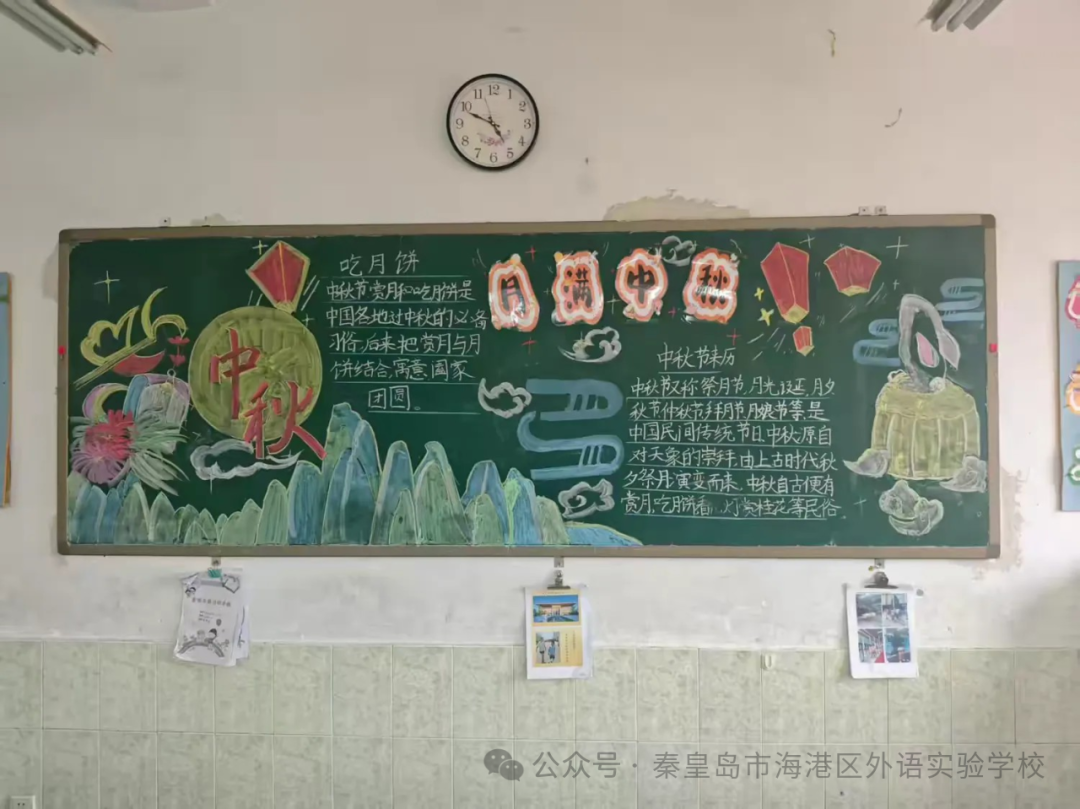 12
1
2
3
4
5
6
7
8
9
10
11
月满中秋
中秋
吃月饼
中秋节赏月和吃月饼是
中国各地过中秋的必备
习俗,后来把赏月与月
饼结合,寓意阖家
团圆。
中秋节来历
中秋节又称祭月节,月光诞,月夕
秋节仲秋节拜月节月娘节等,是
中国民间传统节日,中秋源自
对天象的崇拜,由上古时代秋
夕祭月演变而来,中秋自古便有
赏月,吃月饼,看灯赏桂花等民俗
公众号·秦皇岛市海港区外语实验学校